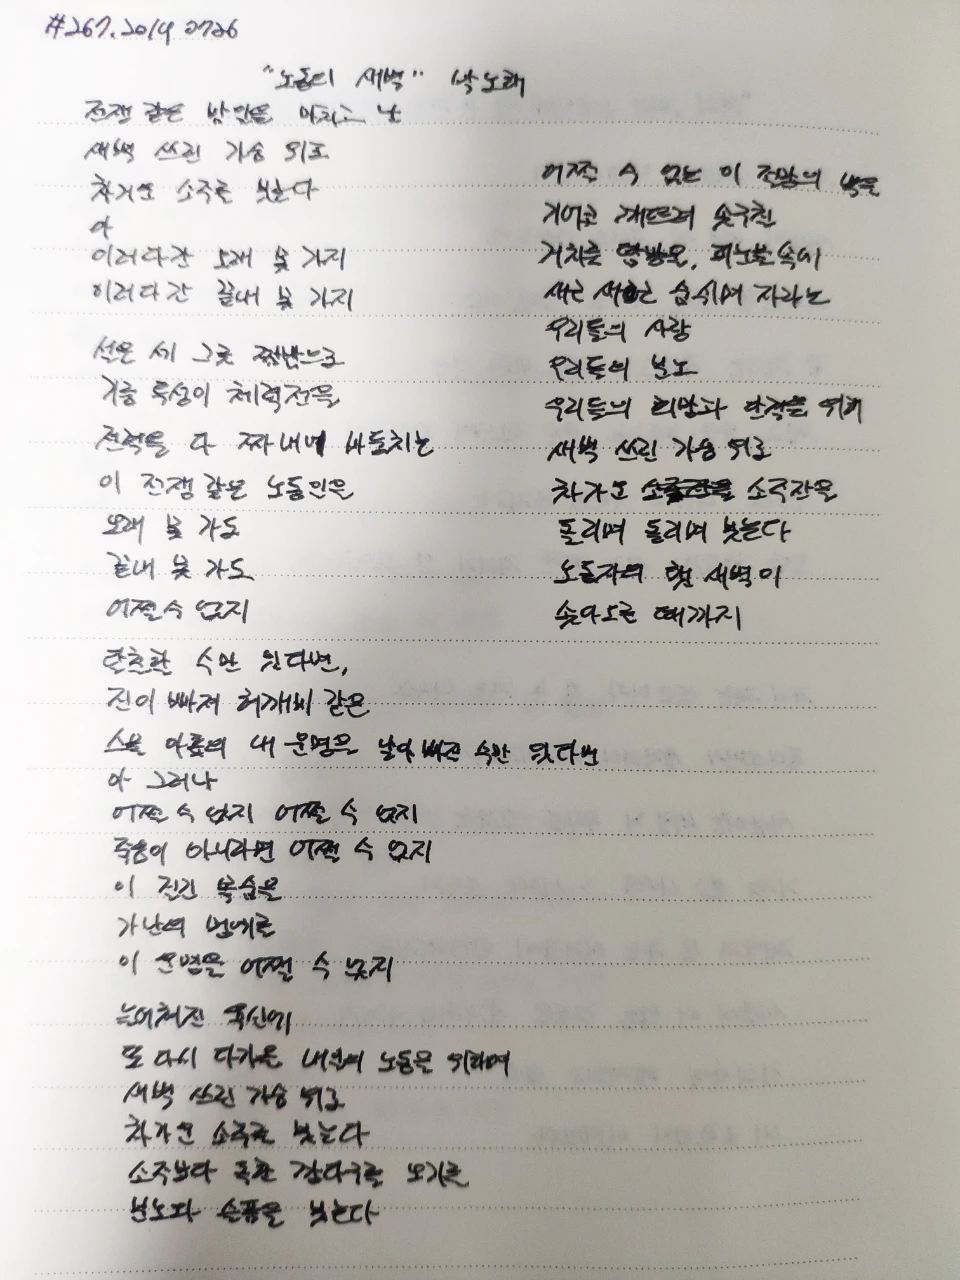 #267. 2019 0726
"노동의 새벽" 박노해
전쟁 같은 밤일을 마치고 난
새벽 쓰린 가슴 위로
차거운 소주를 붓는다
아
이러다간 오래 못 가지
이러다간 끝내 못 가지
설은 세 그릇 짬밥으로
기름 투성이 체력전을
전력을 다 짜내며 바둥치는
이 전쟁 같은 노동일을
오래 못 가도
끝내 못 가도
어쩔 수 없지
탈출할 수만 있다면,
진이 빠져 허깨비 같은
스물 아홉의 내 운명을 날아 빠질 수만 있다면
아 그러나
어쩔 수 없지 어쩔 수 없지
죽음이 아니라면 어쩔 수 없지
이 질긴 목숨을
가난의 멍에를
이 운명을 어쩔 수 없지
늘어쳐진 육신에
또 다시 다가올 내일의 노동을 위하여
새벽 쓰린 가슴 위로
차거운 소주를 붓는다
소주보다 독한 깡다구를 오기를
분노와 슬픔을 붓는다
어쩔 수 없는 이 절망의 벽을
기어코 깨뜨려 솟구칠
거치른 땀방울, 피눈물 속에
새근 새근 숨쉬며 자라는
우리들의 사랑
우리들의 분노
우리들의 희망과 단결을 위해
새벽 쓰린 가슴 위로
차가운 소주잔을
돌리며 돌리며 붓는다
노동자의 햇 새벽이
솟아오를 때까지